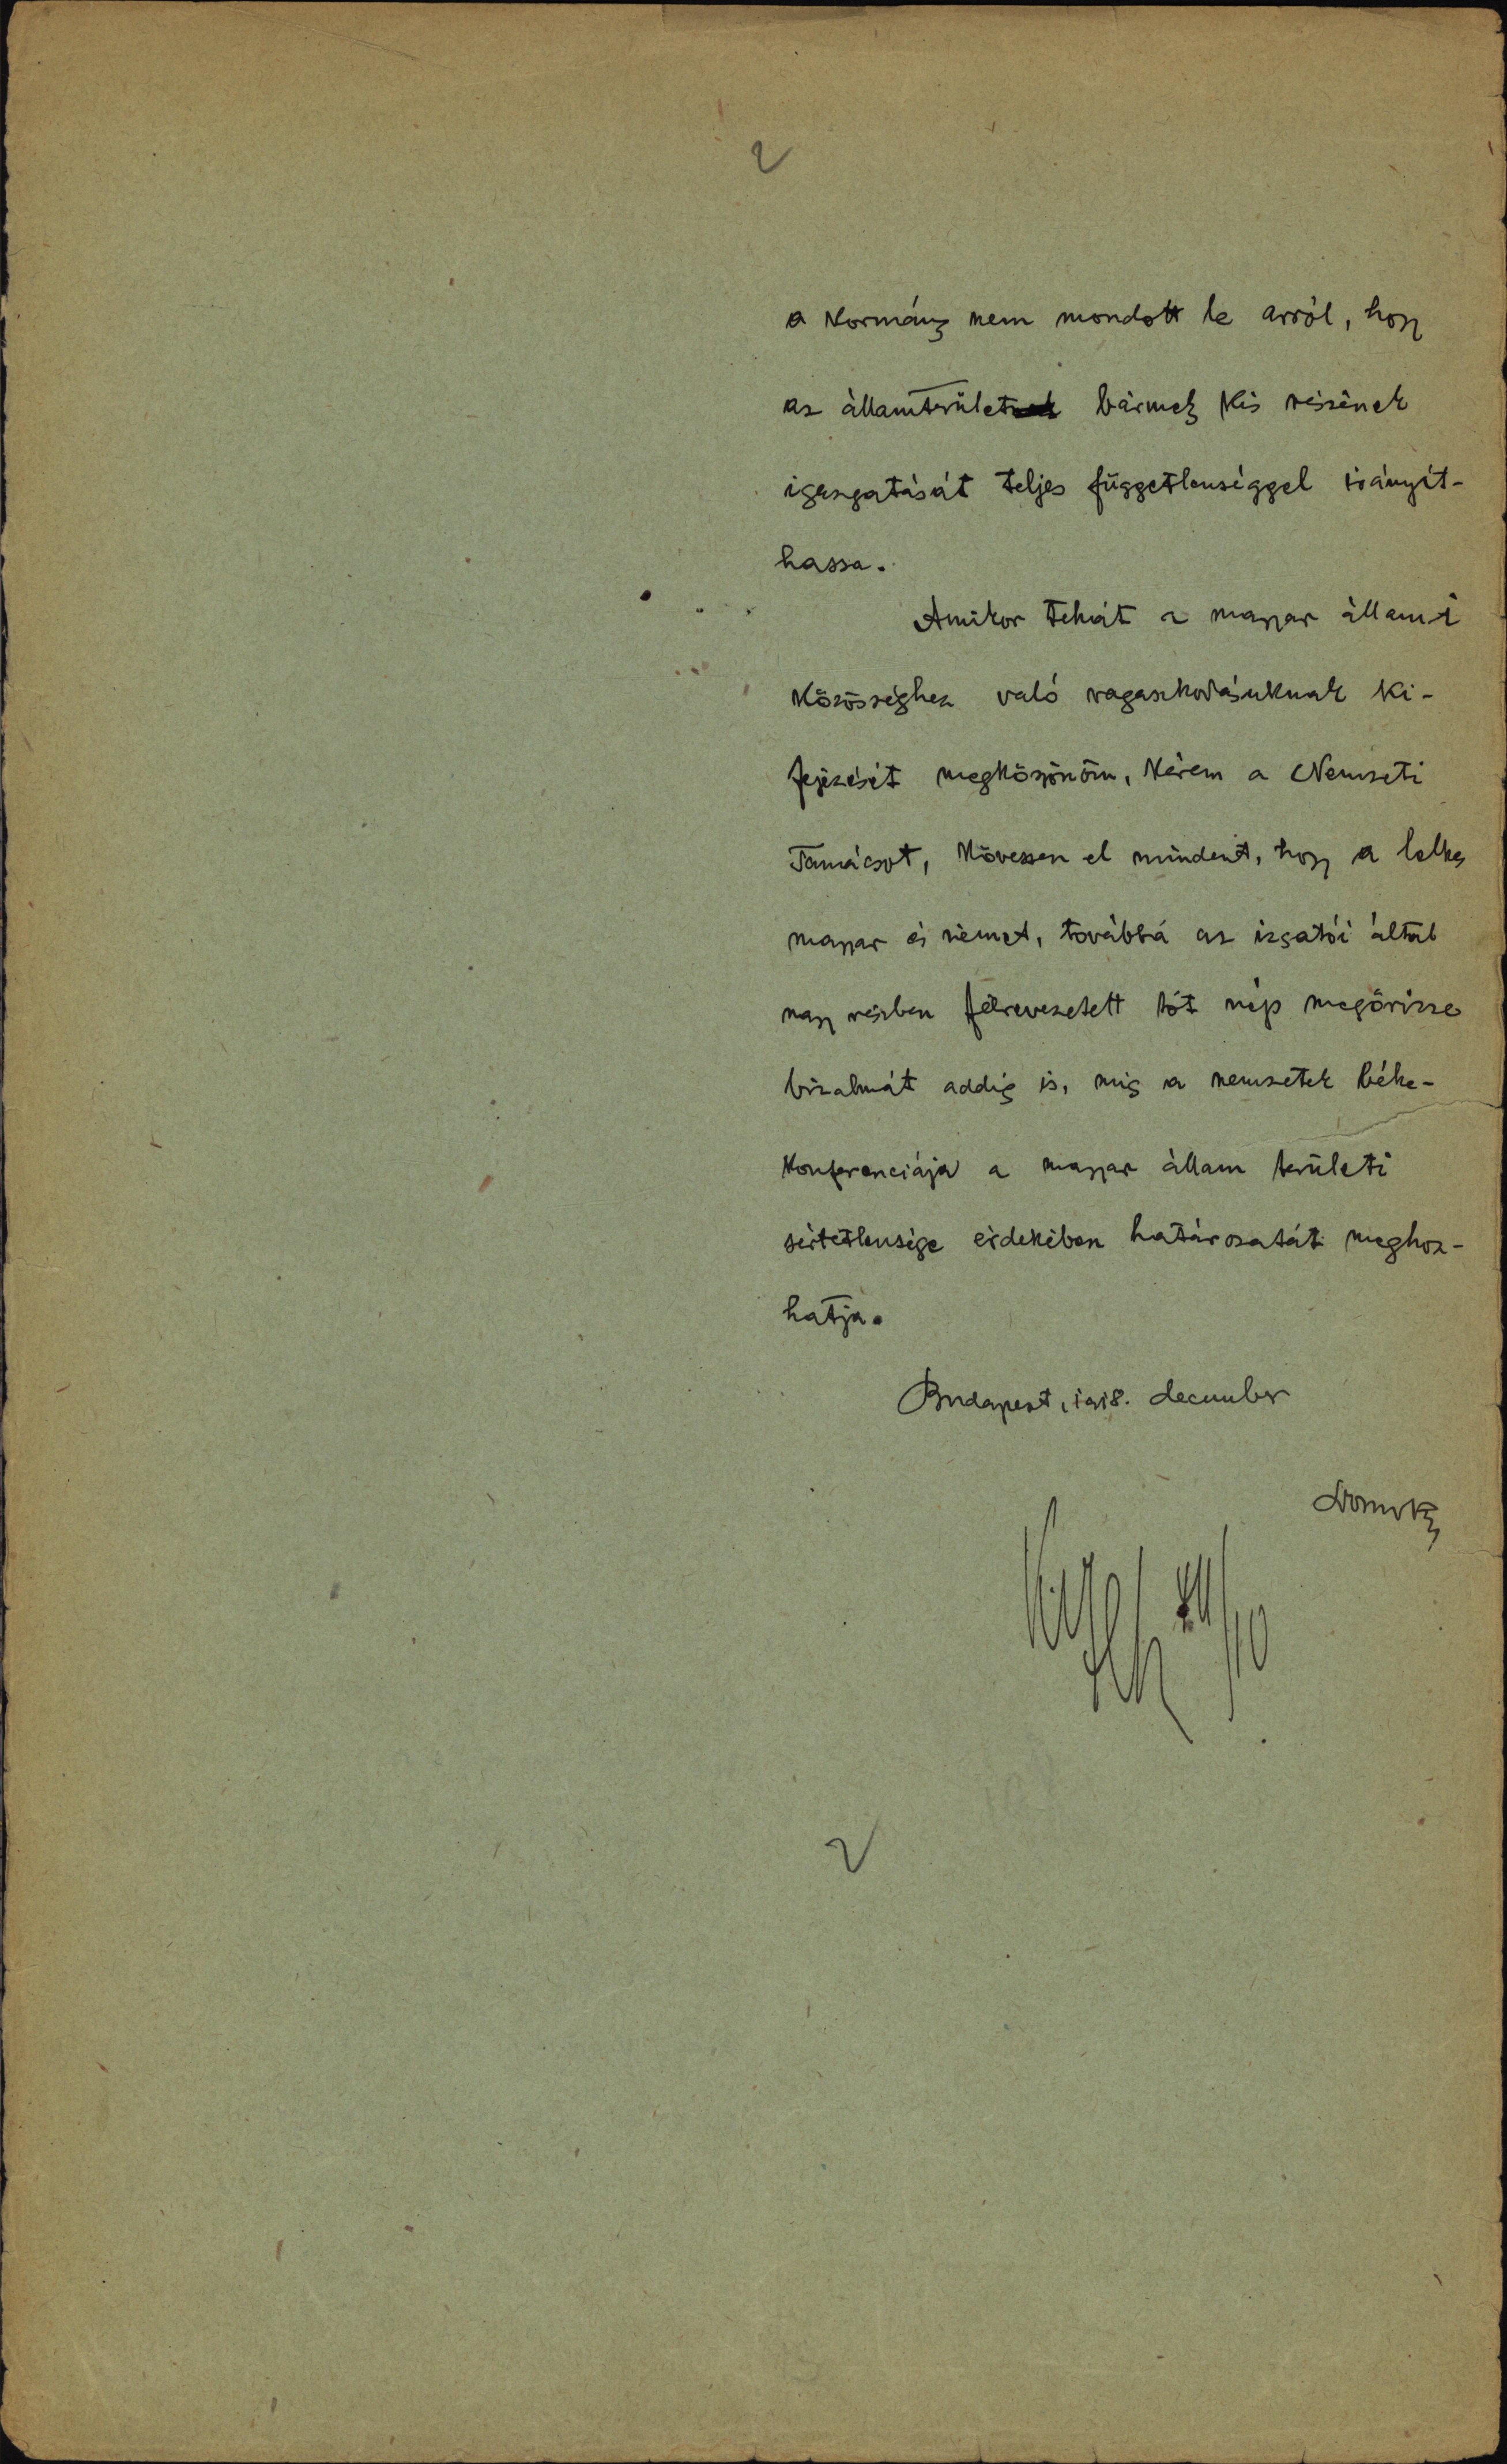 2
a kormány nem mondott le arról, hogy
az államterület bármely kis részének
igazgatását teljes függetlenséggel irányít-
hassa.
Amikor tehát a magyar állami
közösséghez való ragaszkodásuknak ki-
fejezését megköszönöm, kérem a Nemzeti
Tanácsot, kövessen el mindent, hogy a lelkes
magyar és német, továbbá az izgatói által
nagy részben félrevezetett tót nép megőrizze
bizalmát addig is, mig a nemzetek béke-
konferenciája a magyar állam területi
sértetlensége érdekében határozatát meghoz-
hatja.
Budapest, 1918. december
XII/10
2